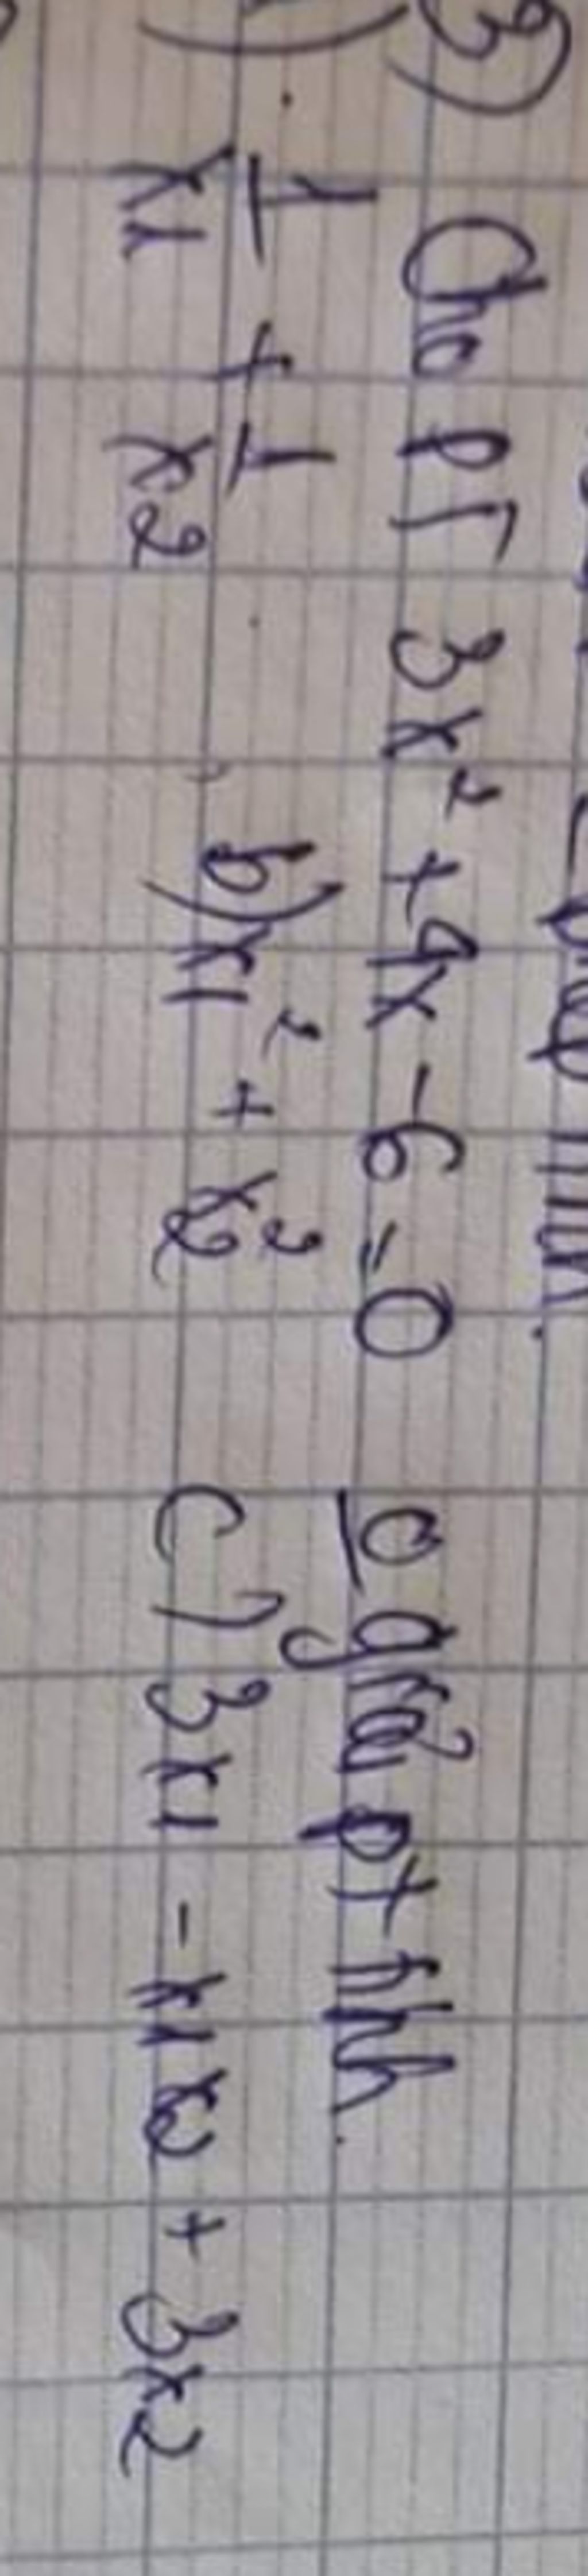 3) Cho PT 3x² + 4x - 6 = 0 o giải pt tính.
1/x1 + 1/x2 b) x1² + x2² c) 3x1 - x1x2 + 3x2